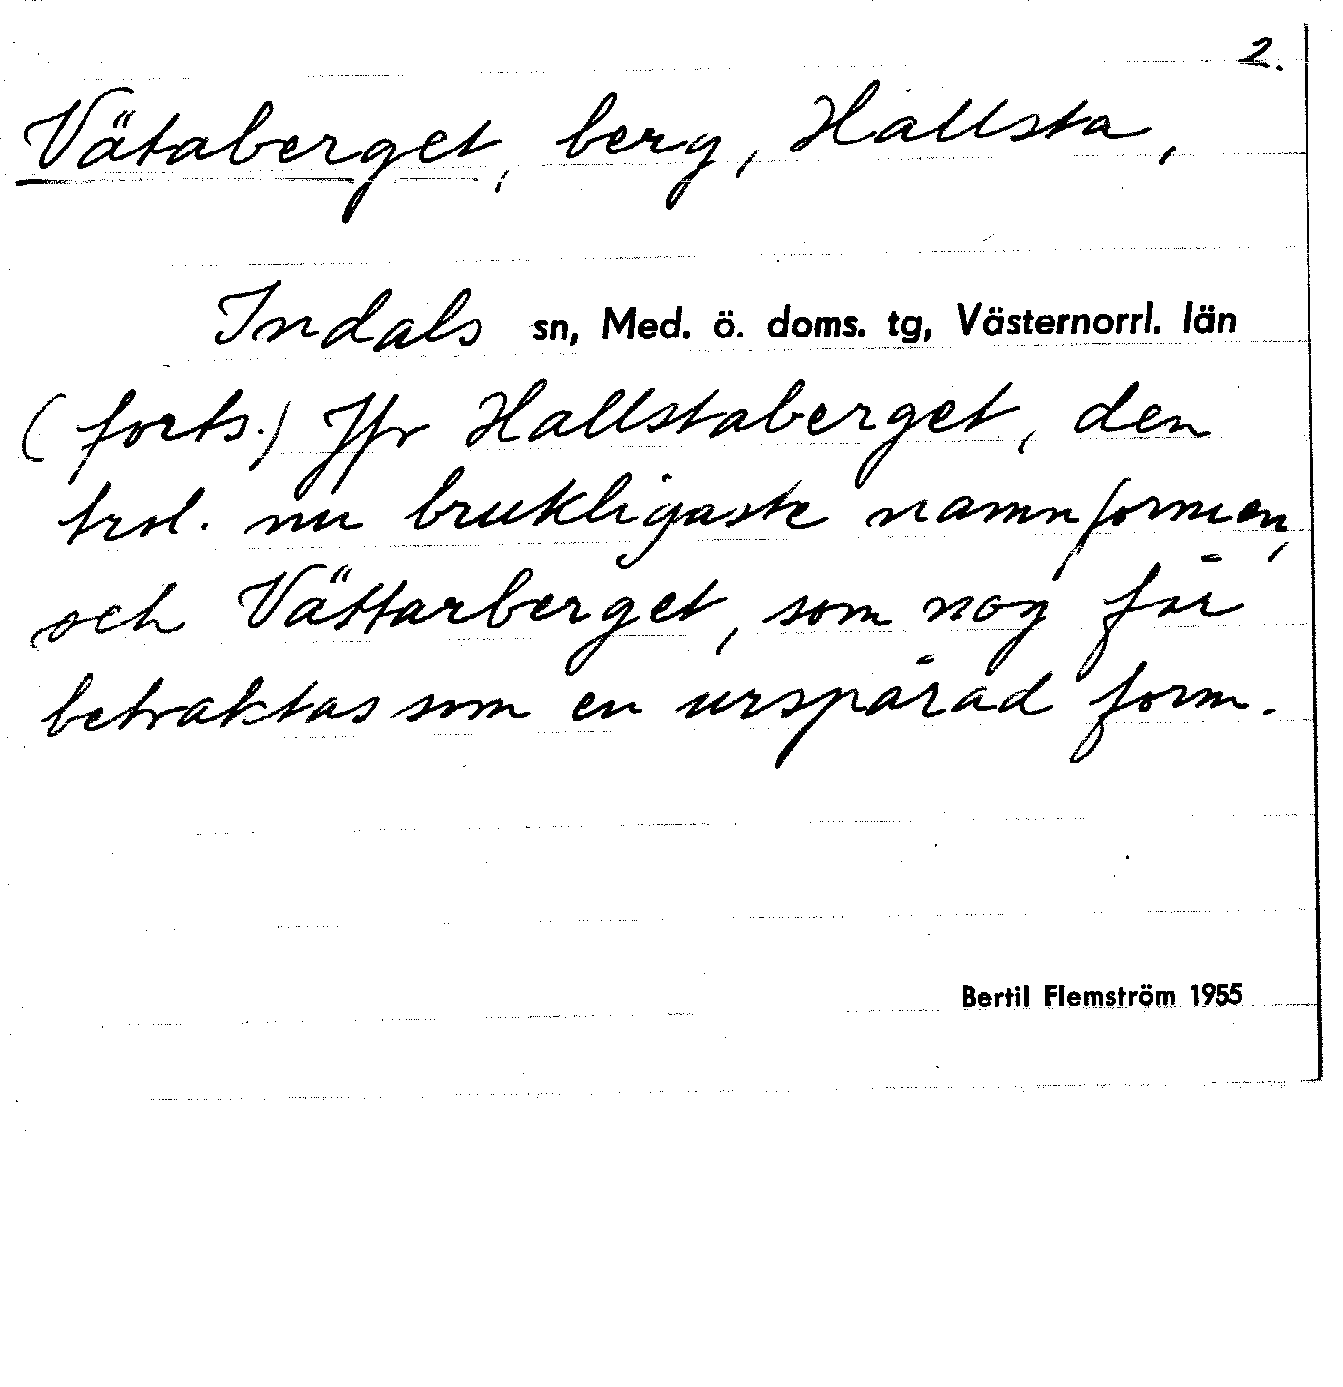 2.
Vätaberget, berg, Hallsta,
Indals sn, Med. ö. doms. tg, Västernorrl. län
(forts.) Jfr Hallstaberget, den
trol. nu brukligaste namnformen,
och Vättarberget, som nog får
betraktas som en urspårad form.
Bertil Flemström 1955